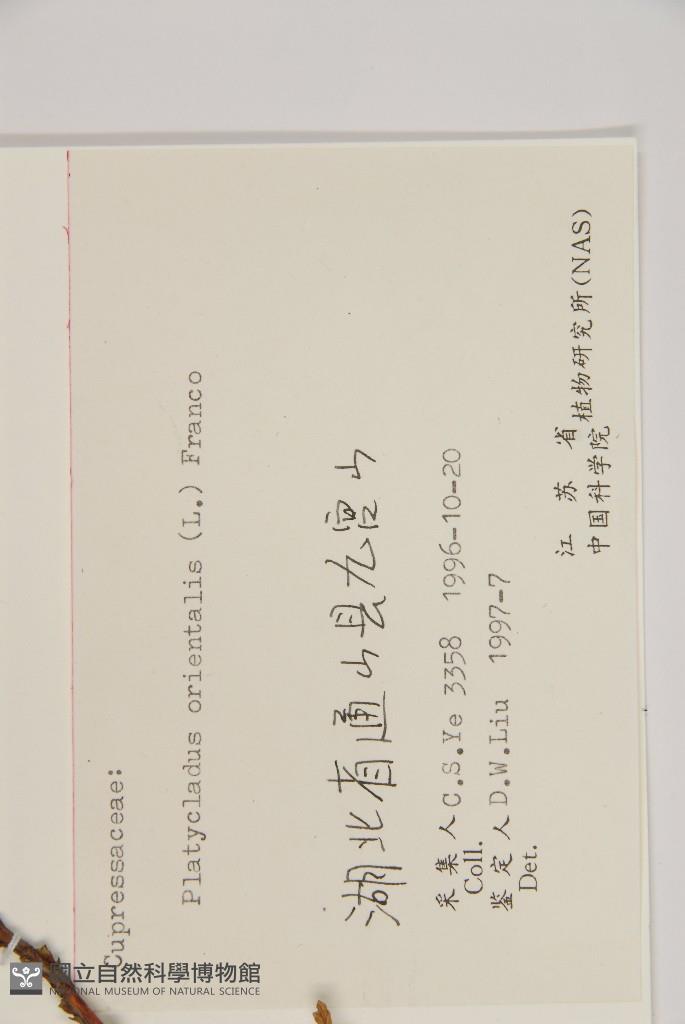 Cupressaceae:
Platycladus orientalis (L.) Franco
湖北省通山县九宫山
采集人 C.S.Ye 3358 1996-10-20
Coll.
鉴定人 D.W.Liu 1997-7
Det.
江苏省
中国科学院 植物研究所(NAS)
國立自然科學博物館
NATIONAL MUSEUM OF NATURAL SCIENCE